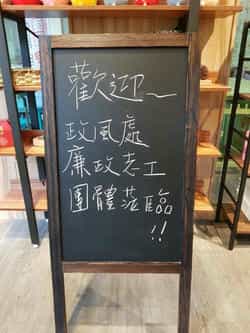 歡迎~
政風處
廉政志工
團體蒞臨
!!